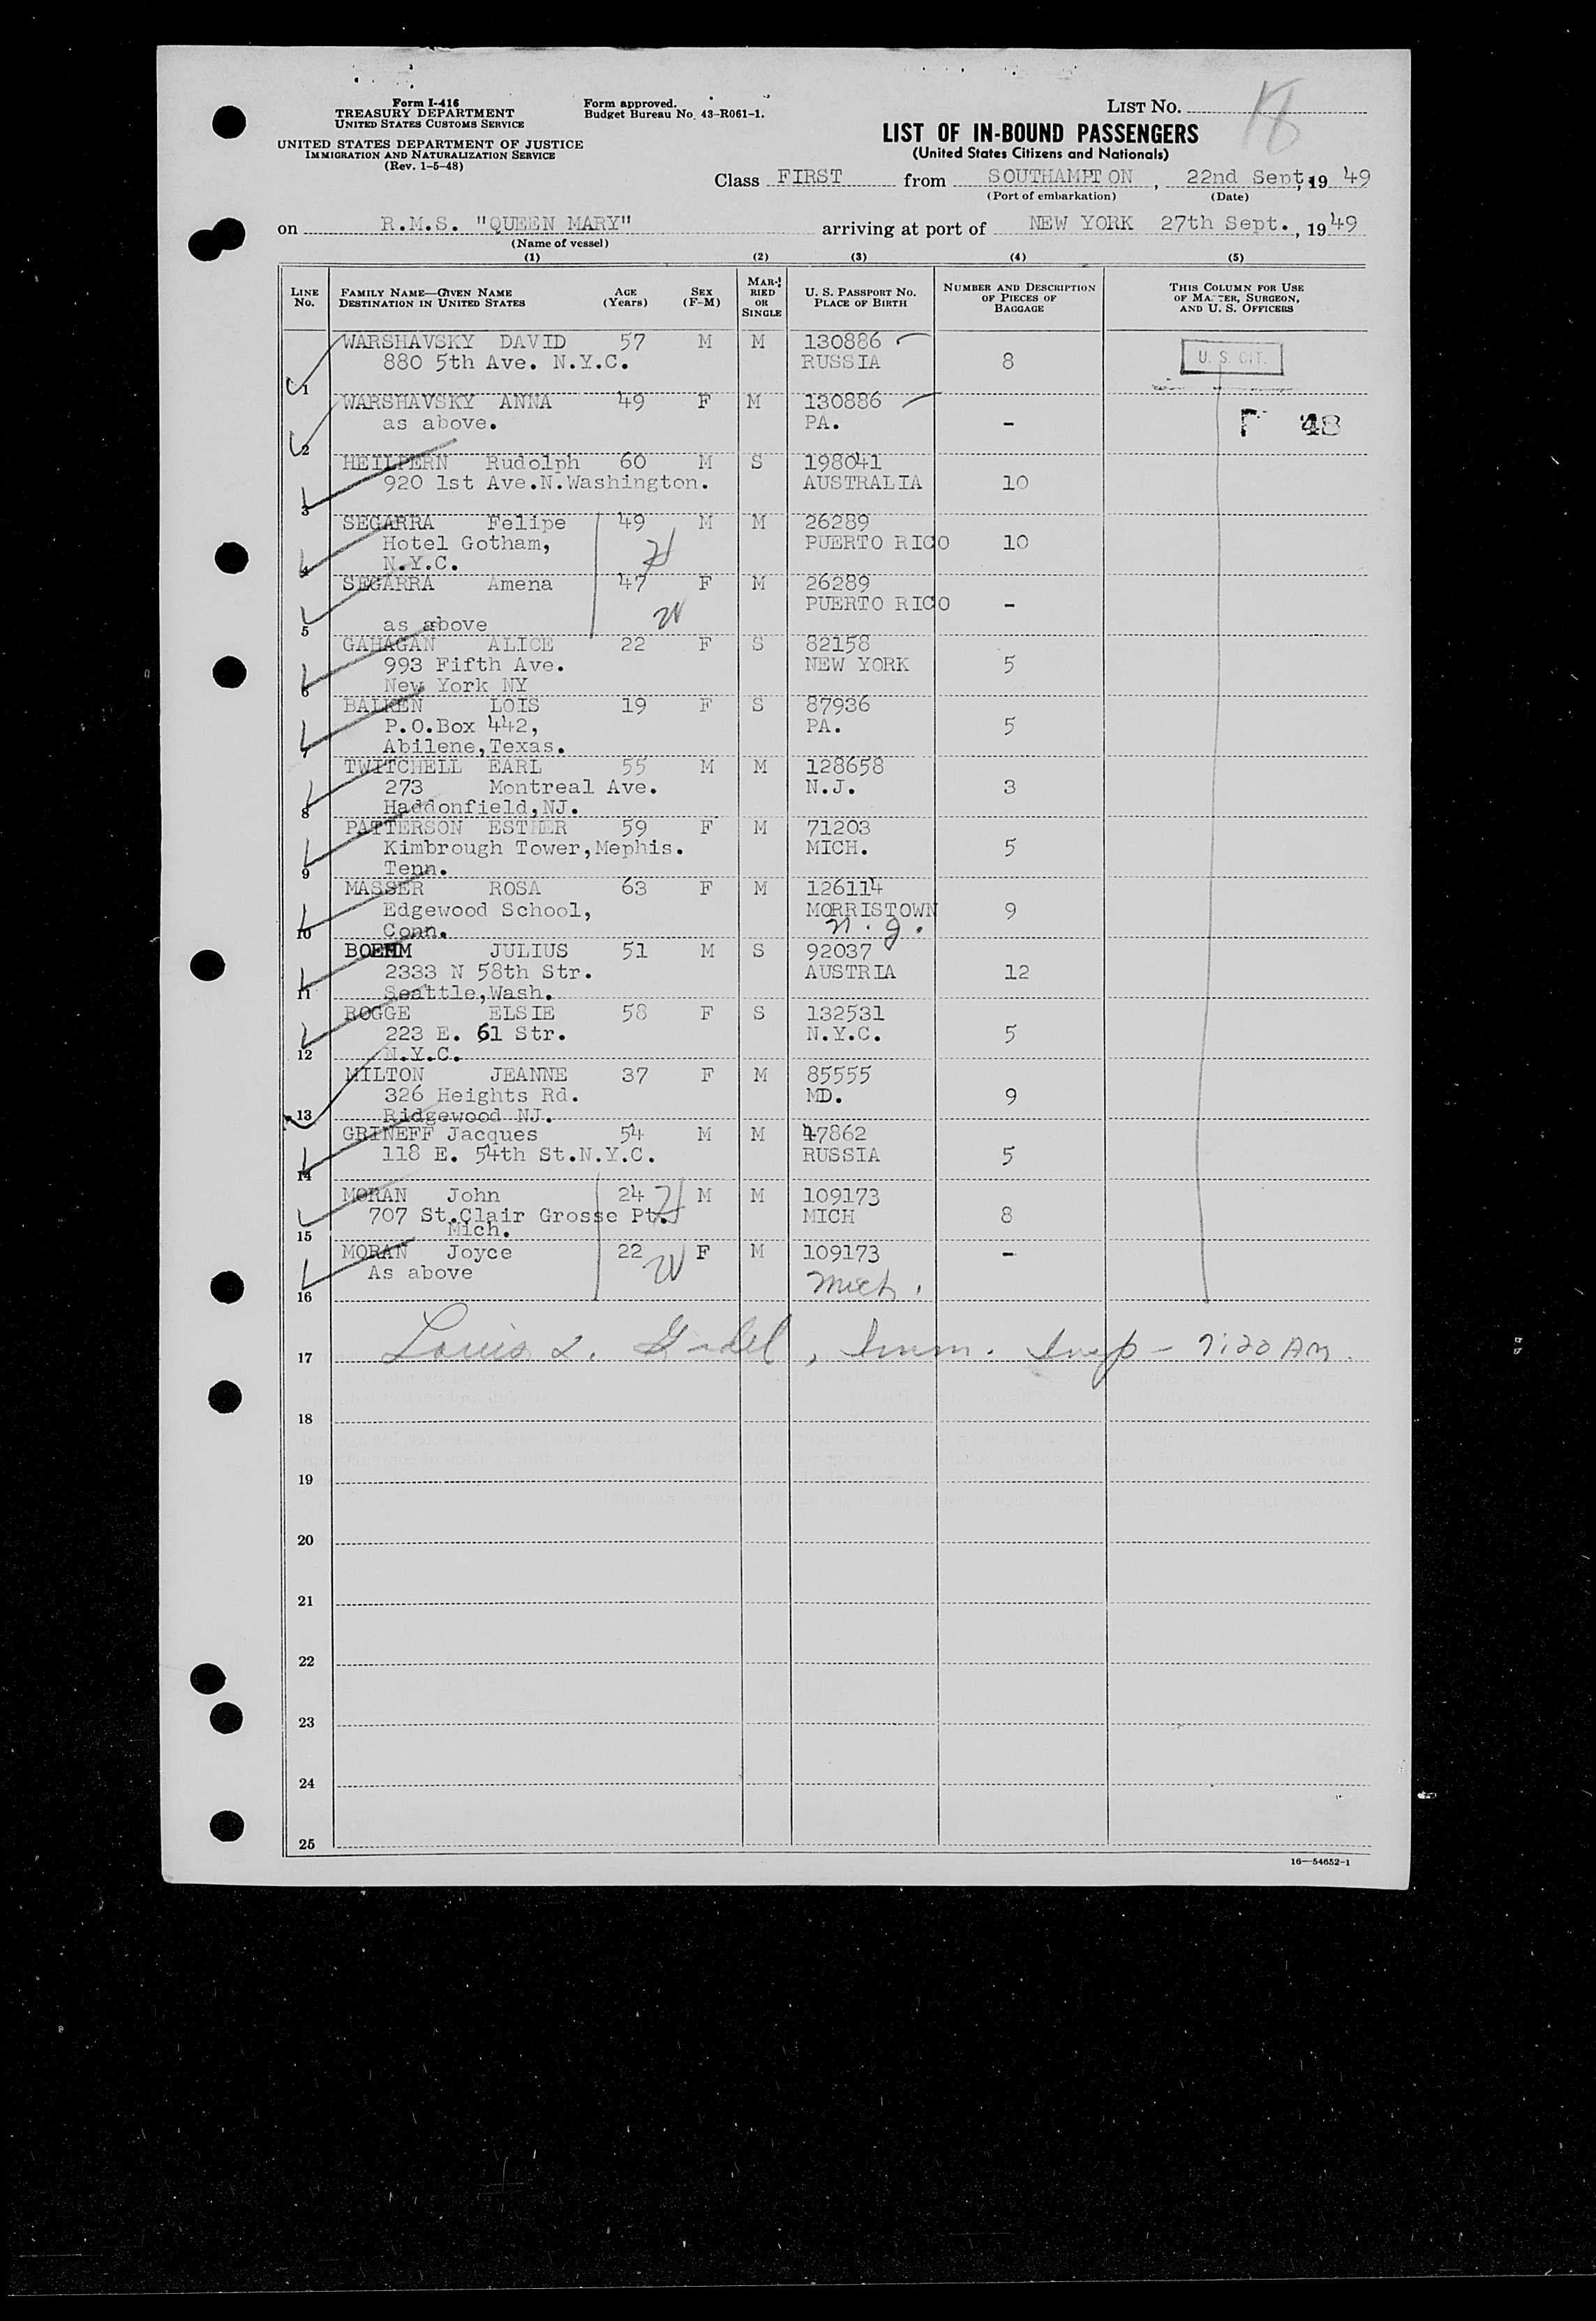 Form I-416
TREASURY DEPARTMENT
UNITED STATES CUSTOMS SERVICE
UNITED STATES DEPARTMENT OF JUSTICE
IMMIGRATION AND NATURALIZATION SERVICE
(Rev. 1-5-48)
Form approved.
Budget Bureau No. 43-R061-1.
LIST NO. 18
LIST OF IN-BOUND PASSENGERS
(United States Citizens and Nationals)
Class FIRST from SOUTHAMPTON, 22nd Sept, 19 49
(Port of embarkation) (Date)
on R.M.S. "QUEEN MARY" arriving at port of NEW YORK 27th Sept., 19 49
(Name of vessel)
(1) (2) (3) (4) (5)
LINE NO. FAMILY NAME—GIVEN NAME DESTINATION IN UNITED STATES AGE (Years) SEX (F-M) MARRIED OR SINGLE U. S. PASSPORT NO. PLACE OF BIRTH NUMBER AND DESCRIPTION OF PIECES OF BAGGAGE THIS COLUMN FOR USE OF MASTER, SURGEON, AND U. S. OFFICERS
WARSHAVSKY DAVID 57 M M 130886
880 5th Ave. N.Y.C. RUSSIA 8 U. S. CIT.
1
WARSHAVSKY ANNA 49 F M 130886
as above. PA. - F 48
2
HEILPERN Rudolph 60 M S 198041
920 1st Ave.N.Washington. AUSTRALIA 10
3
SEGARRA Felipe 49 M M 26289
Hotel Gotham, H PUERTO RICO 10
4 N.Y.C.
SEGARRA Amena 47 F M 26289
W PUERTO RICO -
5 as above
GAHAGAN ALICE 22 F S 82158
993 Fifth Ave. NEW YORK 5
6 New York NY
BALKEN LOIS 19 F S 87936
P.O.Box 442, PA. 5
7 Abilene,Texas.
TWITCHELL EARL 55 M M 128658
273 Montreal Ave. N.J. 3
8 Haddonfield,NJ.
PATTERSON ESTHER 59 F M 71203
Kimbrough Tower,Mephis. MICH. 5
9 Tenn.
MASSER ROSA 63 F M 126114
Edgewood School, MORRISTOWN 9
10 Conn. N.J.
BOEHM JULIUS 51 M S 92037
2333 N 58th Str. AUSTRIA 12
11 Seattle,Wash.
ROGGE ELSIE 58 F S 132531
223 E. 61 Str. N.Y.C. 5
12 N.Y.C.
MILTON JEANNE 37 F M 85555
326 Heights Rd. MD. 9
13 Ridgewood NJ.
GRINEFF Jacques 54 M M 47862
118 E. 54th St.N.Y.C. RUSSIA 5
14
MORAN John 24 H M M 109173
707 St.Clair Grosse Pt. MICH 8
15 Mich.
MORAN Joyce 22 W F M 109173 -
As above Mich.
16
17 Louis L. , Imm. Insp - 7:20 AM.
18
19
20
21
22
23
24
25
16—54652-1